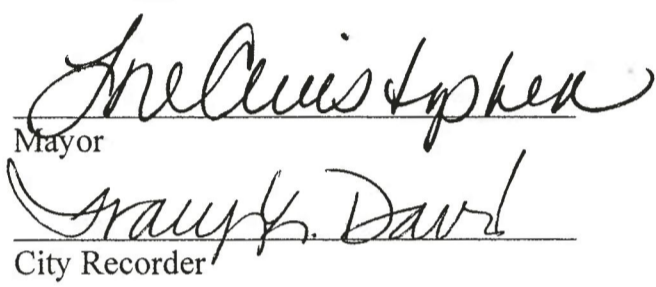 Lore Christopher
Mayor
Tracy L. Davis
City Recorder